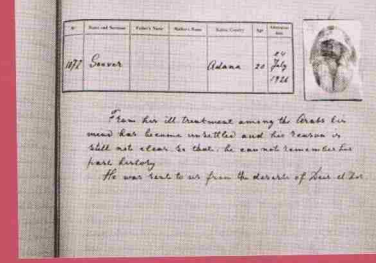 No Name and Surname Father's Name Mother's Name Native Country Age Admission Date
1072 Souver Adana 20 24 July 1926
From his ill treatment among the Arabs his
mind has become unsettled and his reason is
still not clear. So that, he can not remember his
past history
He was sent to us from the deserts of Deir el Zor